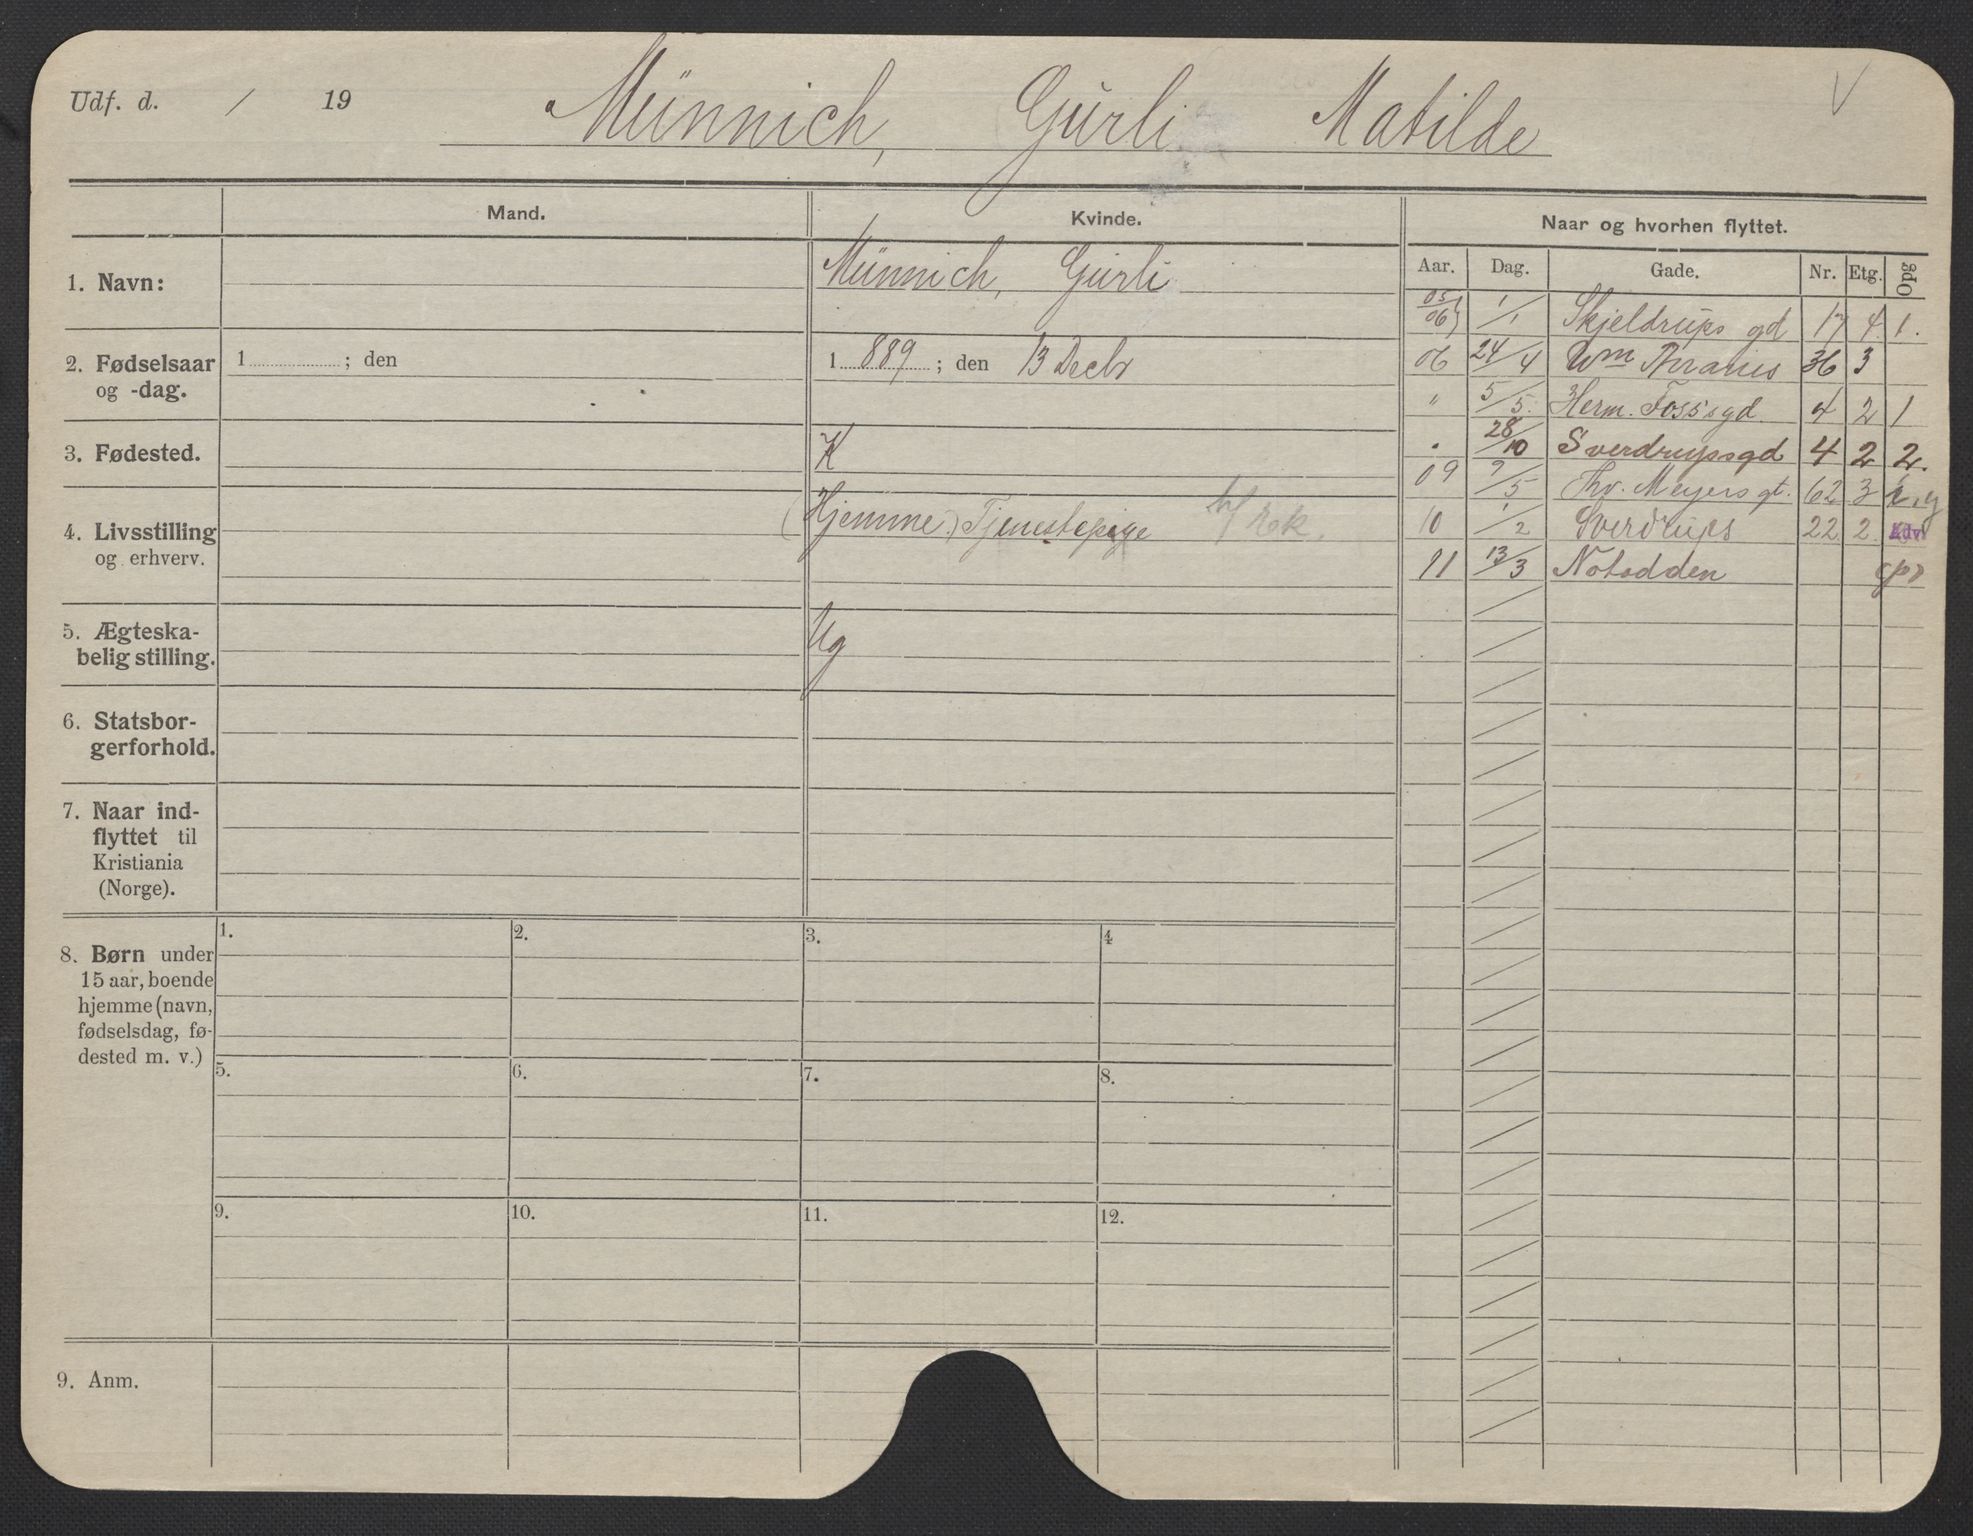 Udf. d. / 19
Münnich, Gurli Matilde
Mand.
Kvinde.
Naar og hvorhen flyttet.
Aar. Dag. Gade. Nr. Etg. Opg
1. Navn:
Münnich, Gurli
05/06 1/1 Skjeldrups gd 17 4 1.
2. Fødselsaar og -dag.
1 ; den
1 889 ; den 13 Decbr
06 24/4 Wm Thranes 36 3
" 5/5. Herm. Fossgd. 4 2 1
3. Fødested.
K
" 28/10 Sverdrupsgd 4 2 2.
09 9/5 Thv. Meyers gt. 62 3
4. Livsstilling og erhverv.
(Hjemme.) Tjenestepige
10 1/2 Sverdrups 22 2
11 13/3 Notodden
5. Ægteska-
belig stilling.
Ug
6. Statsbor-
gerforhold.
7. Naar ind-
flyttet til
Kristiania
(Norge).
8. Børn under
15 aar, boende
hjemme (navn,
fødselsdag, fø-
dested m. v.)
1. 2. 3. 4
5. 6. 7. 8.
9. 10. 11. 12.
9. Anm.